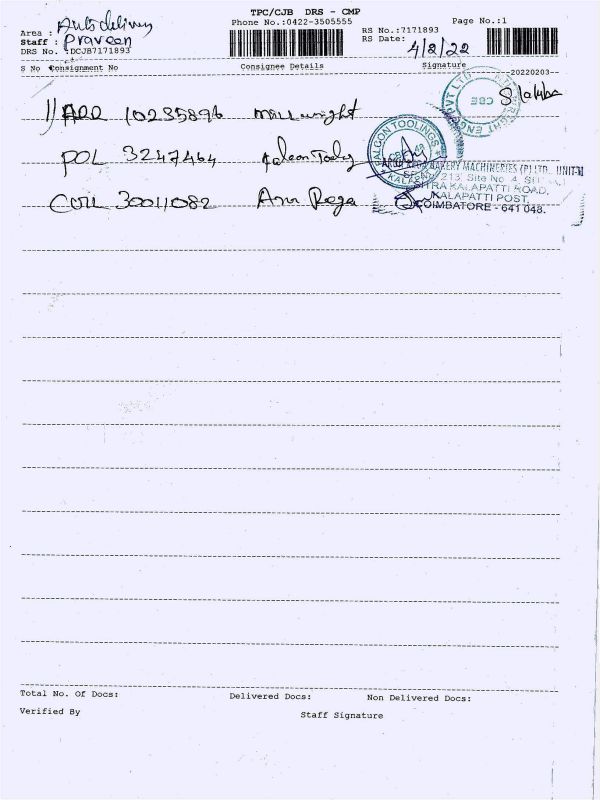 TPC/CJB DRS - CMP
Phone No.:0422-3505555 Page No.:1
Area : Auto delivery
Staff : Praveen
DRS No. :DCJB7171893
RS No.:7171893
RS Date: 4/8/22
S No Consignment No Consignee Details Signature
20220203
10235896 Millwright
POL 3247464
30011082
PVT LTD
CBE
FALCON TOOLINGS
KALAPATTI
BAKERY MACHINERIES (P) LTD., UNIT-
213, Site No. 4,
KALAPATTI ROAD,
KALAPATTI POST,
COIMBATORE - 641 048.
Total No. Of Docs: Delivered Docs: Non Delivered Docs:
Verified By Staff Signature